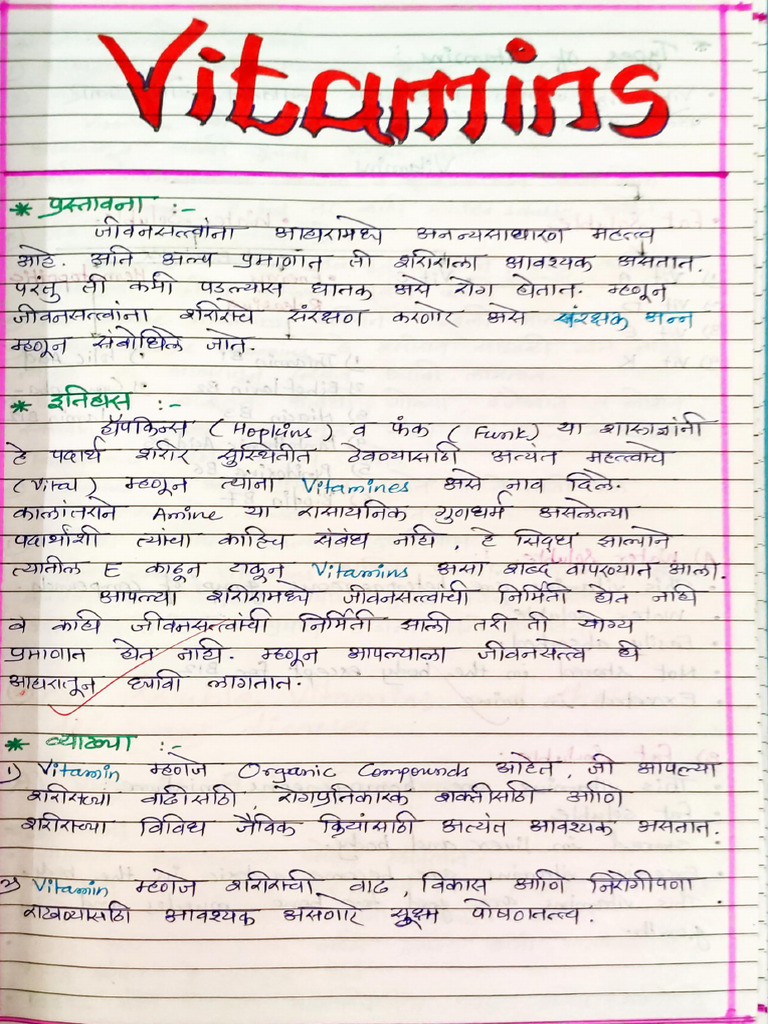 Vitamins
* प्रस्तावना :-
जीवनसत्त्वांना आहारामध्ये अनन्यसाधारण महत्त्व
आहे. अति अल्प प्रमाणात ती शरीराला आवश्यक असतात.
परंतु ती कमी पडल्यास घातक असे रोग होतात. म्हणून
जीवनसत्त्वांना शरीराचे संरक्षण करणारे असे संरक्षक अन्न
म्हणून संबोधिले जाते.
* इतिहास :-
हॉपकिन्स (Hopkins) व फंक (Funk) या शास्त्रज्ञांनी
हे पदार्थ शरीर सुस्थितीत ठेवण्यासाठी अत्यंत महत्त्वाचे
(Vital) म्हणून त्यांना Vitamines असे नाव दिले.
कालांतराने Amine या रासायनिक गुणधर्म असलेल्या
पदार्थाशी त्याचा काहिच संबंध नाही, हे सिद्ध झाल्याने
त्यातील E काढून टाकून Vitamins असा शब्द वापरण्यात आला.
आपल्या शरीरामध्ये जीवनसत्त्वांची निर्मिती होत नाही
व काही जीवनसत्त्वांची निर्मिती झाली तरी ती योग्य
प्रमाणात होत नाही. म्हणून आपल्याला जीवनसत्त्वे ही
आहारातून घ्यावी लागतात.
* व्याख्या :-
1) Vitamin म्हणजे Organic Compounds आहेत, जी आपल्या
शरीराच्या वाढीसाठी, रोगप्रतिकारक शक्तीसाठी आणि
शरीराच्या विविध जैविक क्रियांसाठी अत्यंत आवश्यक असतात.
2) Vitamin म्हणजे शरीराची वाढ, विकास आणि निरोगीपणा
राखण्यासाठी आवश्यक असणारे सूक्ष्म पोषणतत्त्व.